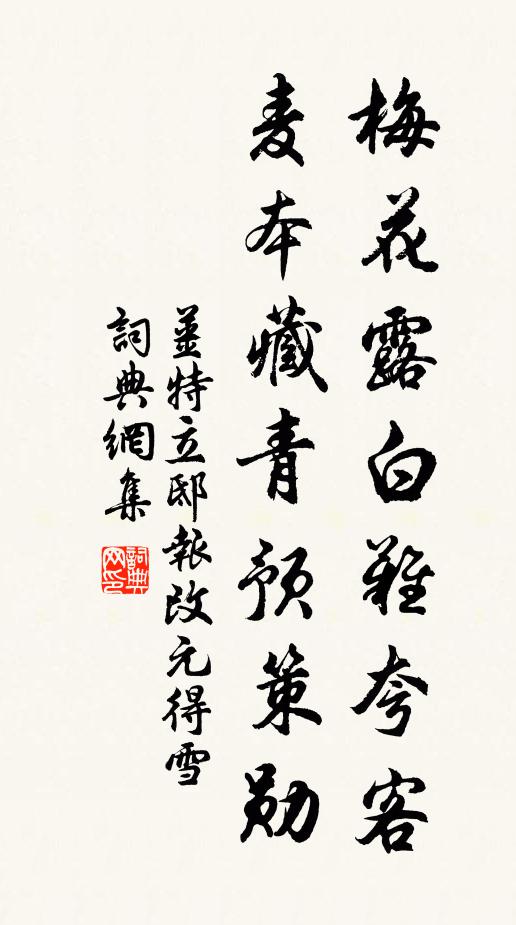 梅花露白難夸客
麦本藏青預策勛
薑特立邸報改元得雪
詞典網集
詞典网印